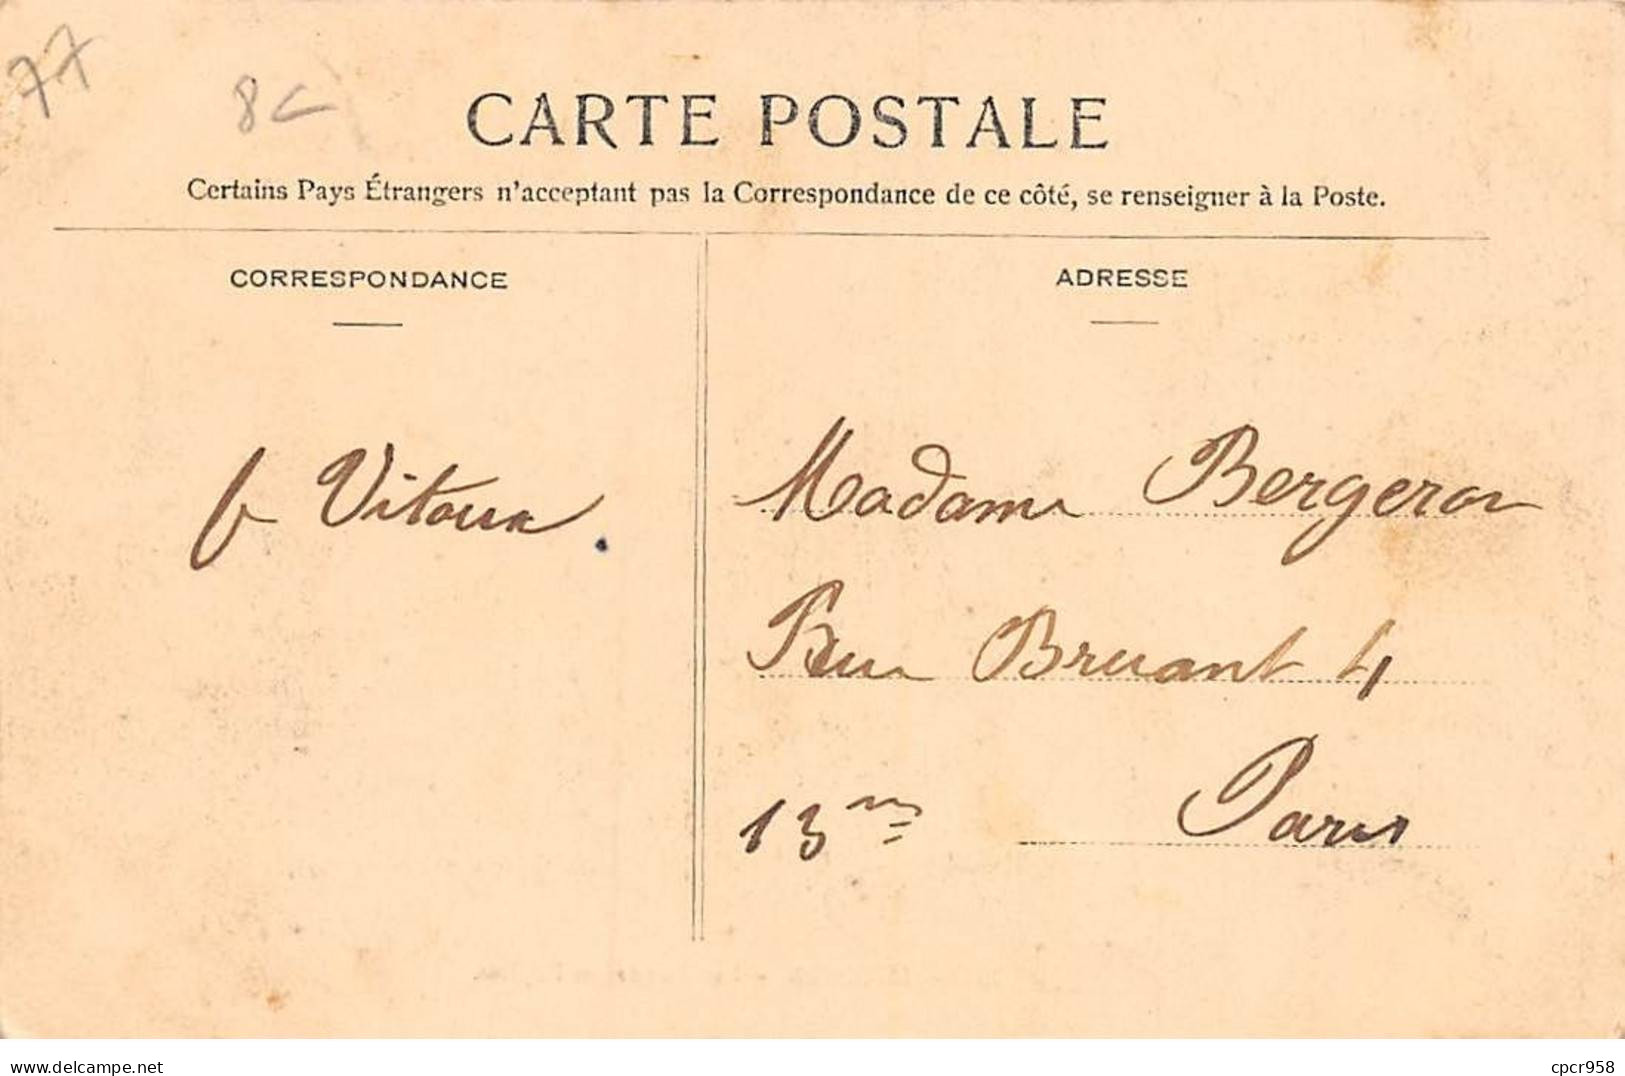 77
8c
CARTE POSTALE
Certains Pays Étrangers n'acceptant pas la Correspondance de ce côté, se renseigner à la Poste.
CORRESPONDANCE
ADRESSE
Vitoux
Madame Bergeron
Rue Bruant 4
13me Paris
www.delcampe.net
cpcr958